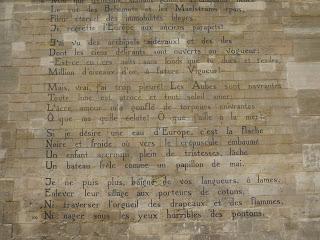 Le rut des Béhémots et les Maelstroms épais,
Fileur éternel des immobilités bleues,
Je regrette l'Europe aux anciens parapets!
J'ai vu des archipels sidéraux! et des îles
Dont les cieux délirants sont ouverts au vogueur:
-Est-ce en ces nuits sans fonds que tu dors et t'exiles,
Million d'oiseaux d'or, ô future Vigueur?
Mais, vrai, j'ai trop pleuré! Les Aubes sont navrantes
Toute lune est atroce et tout soleil amer:
L'âcre amour m'a gonflé de torpeurs enivrantes
Ô que ma quille éclate! Ô que j'aille à la mer!
Si je désire une eau d'Europe, c'est la flache
Noire et froide où vers le crépuscule embaumé
Un enfant accroupi plein de tristesses, lâche
Un bateau frêle comme un papillon de mai.
Je ne puis plus, baigné de vos langueurs, ô lames,
Enlever leur sillage aux porteurs de cotons,
Ni traverser l'orgueil des drapeaux et des flammes,
Ni nager sous les yeux horribles des pontons.